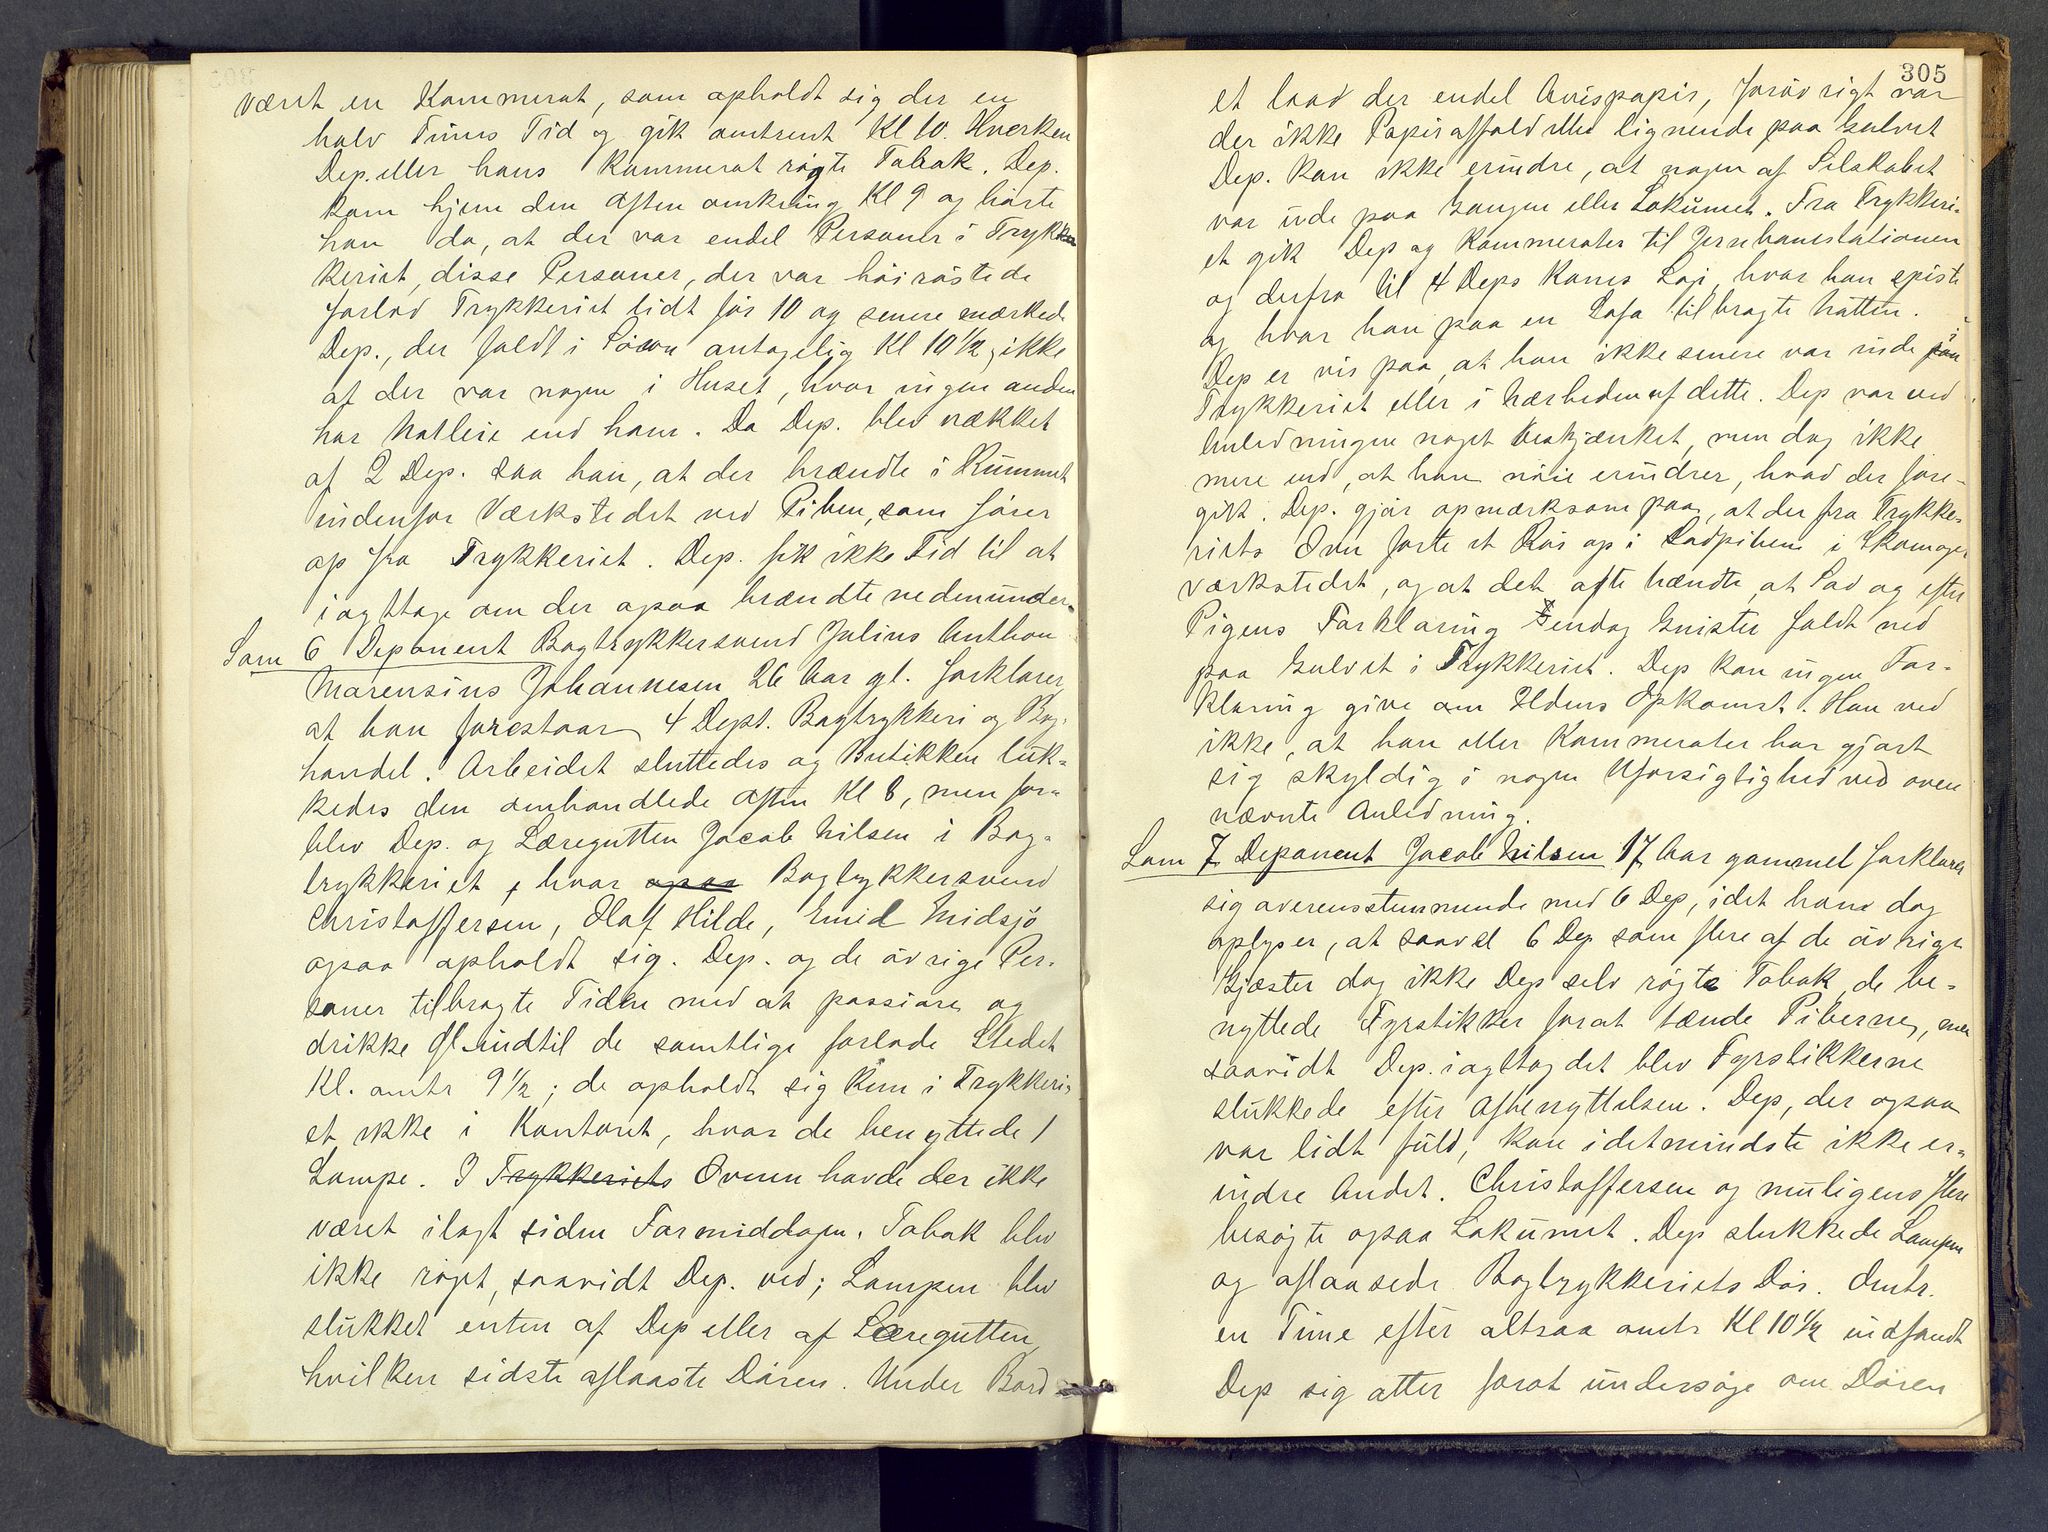 været en Kammerat, som opholdt sig der en
halv Times Tid og gik omtrent Kl 10. Hverken
Dep. eller hans Kammerat røgte Tobak. Dep.
kom hjem den Aften omkring Kl 9 og hørte
han da, at der var endel Personer i Tryk-
keriet, disse Personer, der var høirøstede
forlod Trykkeriet lidt før 10 og senere mærkede
Dep., der faldt i Søvn antagelig Kl 10 1/2, ikke
at der var nogen i Huset, hvor ingen anden
har Natleie end ham. Da Dep. blev vækket
af 2 Dep. saa han, at der brændte i Rummet
indenfor Værkstedet ved Piben, som fører
op fra Trykkeriet. Dep. fik ikke Tid til at
iagttage om der ogsaa brændte nedenunder.
Som 6 Deponent Bogtrykkersvend Julius Anthon
Marensius Johannesen 26 Aar gl. forklarer,
at han forestaar 4 Dept. Bogtrykkeri og Bog-
handel. Arbeidet sluttedes og Butikken luk-
kedes den omhandlede Aften Kl 8, men for-
blev Dep. og Læregutten Jacob Nilsen i Bog-
trykkeriet, hvor ogsaa Bogtykkersvend
Christoffersen, Olaf Hilde, Emil Midsjø
ogsaa opholdt sig. Dep. og de øvrige Per-
soner tilbragte Tiden med at passiare og
drikke Øl indtil de samtlige forlode Stedet
Kl. omtr 9 1/2; de opholdt sig kun i Trykkeri-
et ikke i Kontoret, hvor de benyttede 1
Lampe. I Trykkeriets Ovnen havde der ikke
været ilagt siden Formiddagen. Tobak blev
ikke røget, saavidt Dep. ved; Lampen blev
slukket enten af Dep eller af Læregutten,
hvilken sidste aflaaste Døren. Under Bord
305
et laae der endel Avispapir, forøvrigt var
der ikke Papiraffald eller lignende paa Gulvet
Dep. kan ikke erindre, at nogen af Selskabet
var ude paa Gangen eller Lokumet. Fra Trykkeri-
et gik Dep og Kammerater til Jernbanestationen
og derfra til 4 Deps Kones Loji, hvor han spiste
og hvor han paa en Sofa tilbragte Natten.
Dep er vis paa, at han ikke senere var inde i
Trykkeriet eller i Nærheden af dette. Dep var ved
Anledningen noget beskjænket, men dog ikke
mere end, at han nøie erindrer, hvad der fore-
gik. Dep. gjør opmærksom paa, at der fra Trykke-
riets Ovn førte et Rør op i Sodpiben i Skomager
værkstedet, og at det ofte hændte, at Sod og efter
Pigens Forklaring endog Gnister faldt ned
paa Gulvet i Trykkeriet. Dep kan ingen For-
klaring give om Ildens Opkomst. Han ved
ikke, at han eller Kammerater har gjort
sig skyldig i nogen Uforsigtighed ved oven
nævnte Anledning.
Som 7 Deponent Jacob Nilsen 17 Aar gammel forklarer
sig overensstemmende med 6 Dep, idet hans dog
oplyser, at saavel 6 Dep som flere af de øvrige
Gjæster dog ikke Dep selv røgte Tobak, de be-
nyttede Fyrstikker forat tænde Piberne, men
saavidt Dep. iagttog det blev Fyrstikkerne
slukkede efter Afbenyttelsen. Dep, der ogsaa
var lidt fuld, kan idetmindste ikke er-
indre Andet. Christoffersen og muligens flere
besøgte ogsaa Lokumet. Dep slukkede Lampen
og aflaasede Bogtrykkeriets Dør. Omtr.
en Time efter altsaa omtr Kl 10 1/2 indfandt
Dep sig atter forat undersøge om Døren